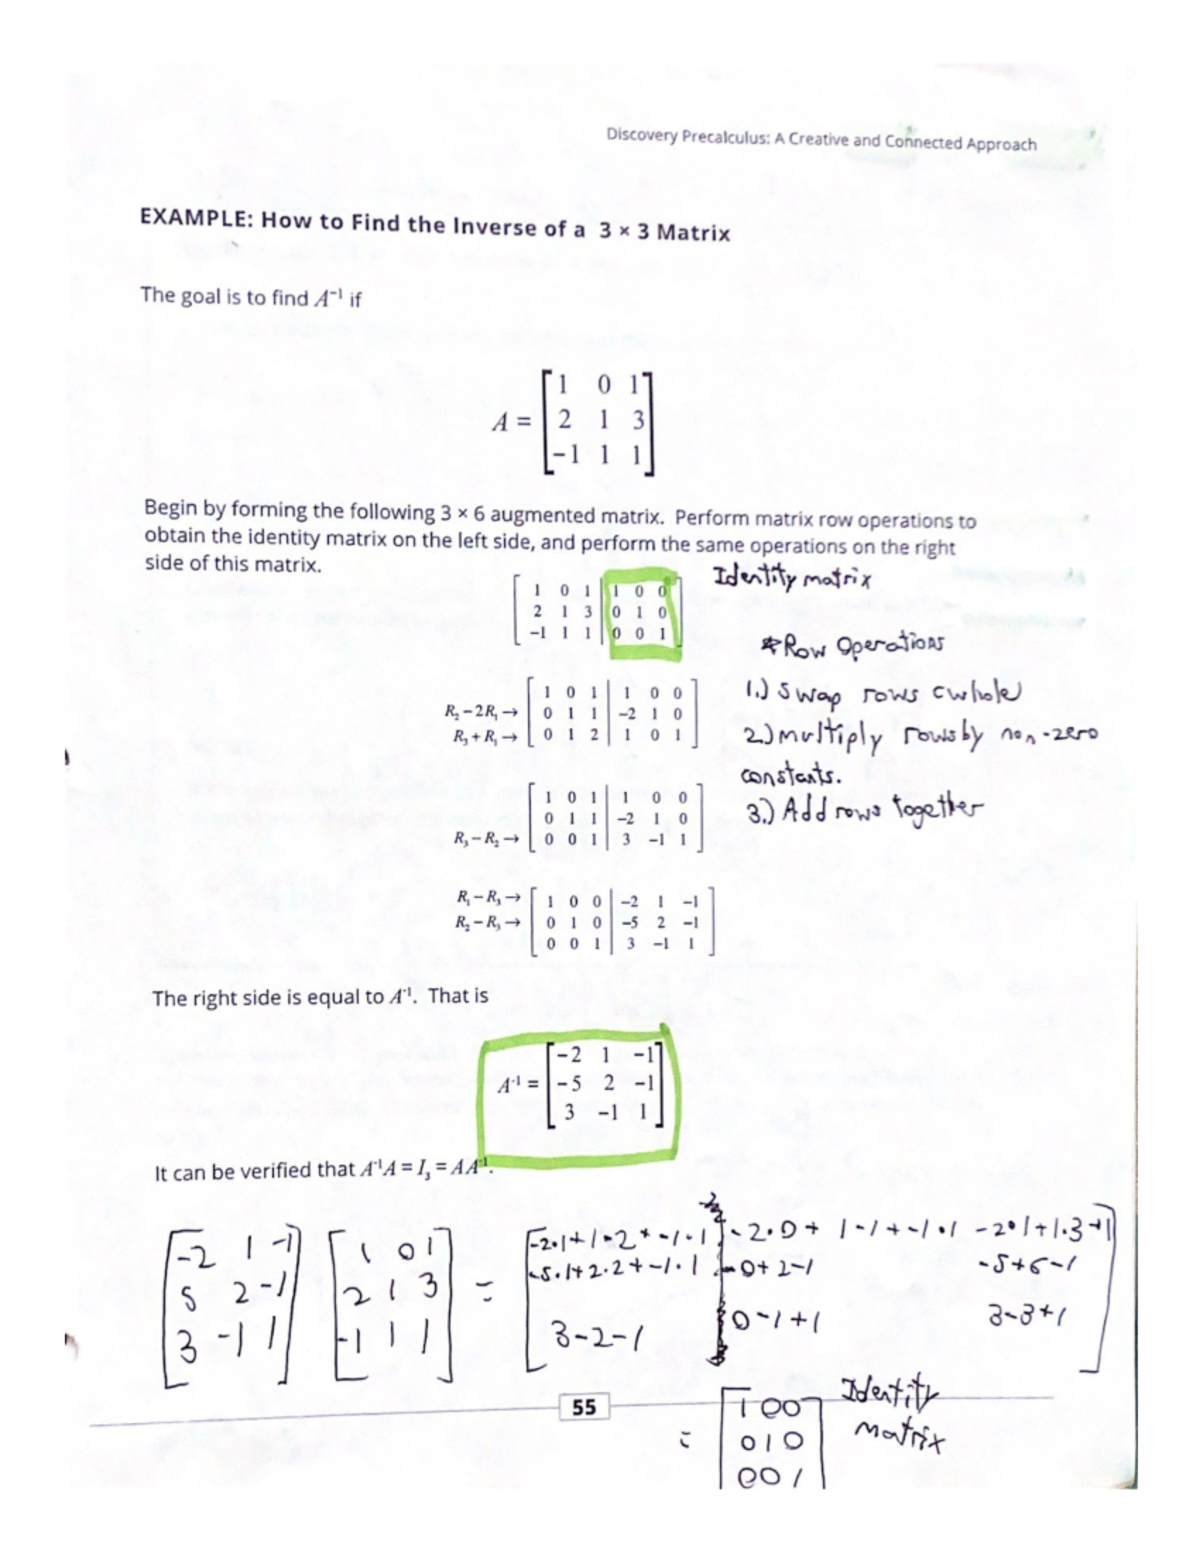 Discovery Precalculus: A Creative and Connected Approach
EXAMPLE: How to Find the Inverse of a 3 × 3 Matrix
The goal is to find A⁻¹ if
A = [1 0 1
2 1 3
-1 1 1]
Begin by forming the following 3 × 6 augmented matrix. Perform matrix row operations to
obtain the identity matrix on the left side, and perform the same operations on the right
side of this matrix.
Identity matrix
[1 0 1 | 1 0 0
2 1 3 | 0 1 0
-1 1 1 | 0 0 1]
*Row Operations
1.) Swap rows cwhole
2.) multiply rows by non-zero
constants.
3.) Add rows together
[1 0 1 | 1 0 0
R₂ - 2R₁ → 0 1 1 | -2 1 0
R₃ + R₁ → 0 1 2 | 1 0 1]
[1 0 1 | 1 0 0
0 1 1 | -2 1 0
R₃ - R₂ → 0 0 1 | 3 -1 1]
R₁ - R₃ → [1 0 0 | -2 1 -1
R₂ - R₃ → 0 1 0 | -5 2 -1
0 0 1 | 3 -1 1]
The right side is equal to A⁻¹. That is
A⁻¹ = [-2 1 -1
-5 2 -1
3 -1 1]
It can be verified that A⁻¹A = I₃ = AA⁻¹.
[-2 1 -1] [1 0 1] = [-2·1+1·2+-1·1 -2·0+1-1+-1·1 -2·1+1·3+1]
5 2 -1 2 1 3 -5·1+2·2+-1·1 -0+2-1 -5+6-1
3 -1 1 -1 1 1 3-2-1 0-1+1 3-3+1
55
= [1 0 0 Identity
0 1 0 matrix
0 0 1]